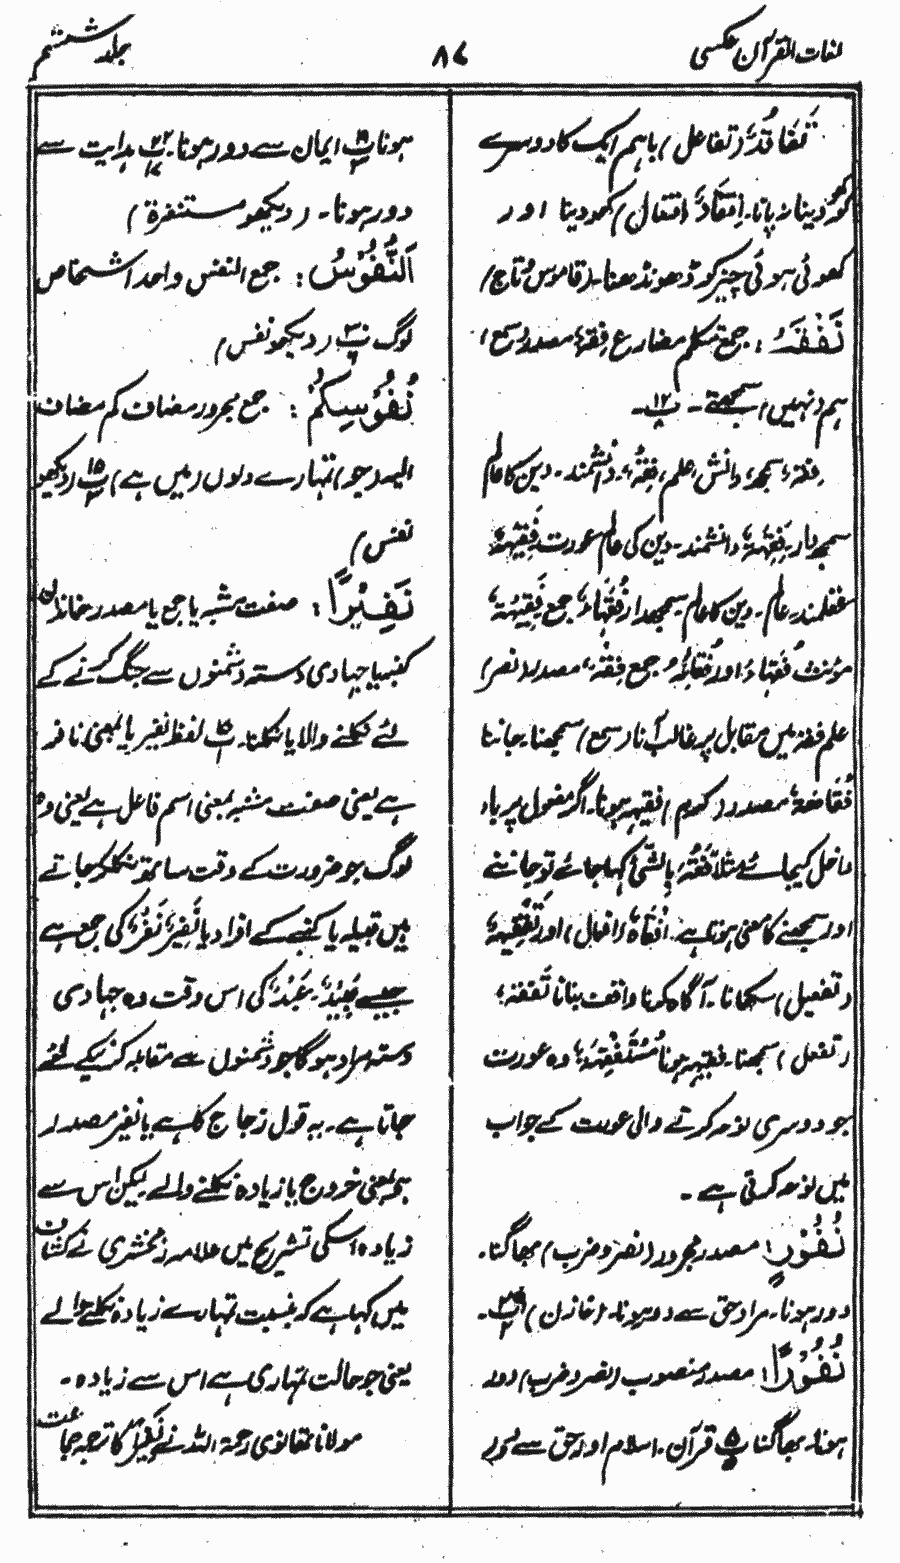 لغات القرآن عکسی
۸۷
جلد ششم
تَفَاقُدٌ (تفاعل) باہم ایک کا دوسرے
کو کھو دینا نہ پانا۔ اِفتِقَادٌ (افتعال) کھو دینا اور
کھوئی ہوئی چیز کو ڈھونڈھنا۔ (قاموس و تاج)
نَفْقَہُ: جمع متکلم مضارع فِقْہٌ مصدر (سمع)
ہم (نہیں) سمجھتے۔ پ۱۲
فِقہٌ، سمجھ، دانش، علم، فِقْہٌ، دانشمند۔ دین کا عالم
سمجھدار، فَقِیْہَۃٌ دانشمند۔ دین کی عالم عورت فَقِیْہٌ
عقلمند۔ عالم۔ دین کا عالم۔ سمجھدار فُقَہَاءُ جمع فَقِیْہَۃٌ
مؤنث فُقَہَاءُ اور فَقَائِہُ جمع فِقْہٌ، مصدر (نصر)
علم فقہ میں مقابل پر غالب آنا (سمع) سمجھنا۔ جاننا
فَقَاہَۃٌ مصدر (کرم) فقیہہ ہونا۔ اگر مفعول پر باء
داخل کیجائے مثلاً فَقُہَ بالشّیِٔ کہا جائے تو جاننے
اور سمجھنے کا معنی ہوتا ہے۔ اِفْقَاہٌ (افعال) اور تَفْقِیْہٌ
(تفعیل) سکھانا۔ آگاہ کرنا واقف بنانا تَفَقُّہٌ
(تفعل) سمجھنا۔ فقیہہ ہونا مُسْتَفْقِہَۃٌ وہ عورت
جو دوسری نوحہ کرنے والی عورت کے جواب
میں نوحہ کرتی ہے۔
نُفُوْرٍ: مصدر مجرور (نصر و ضرب) بھاگنا۔
دور ہونا۔ مراد حق سے دور ہونا۔ (خازن) پ۲۹
نُفُوْرًا: مصدر منصوب (نصر و ضرب) دور
ہونا۔ بھاگنا پ۱۵ قرآن۔ اسلام اور حق سے دور
ہونا پ۱۹ ایمان سے دور ہونا۔ پ۲۲ ہدایت سے
دور ہونا۔ (دیکھو مستنفرۃ)
اَلنُّفُوْسُ: جمع النفس واحد اشخاص
لوگ پ۳۰ (دیکھو نفس)
نُفُوْسِکُمْ: جمع مجرور مضاف کم مضاف
الیہ (جو) تمہارے دلوں (میں ہے) پ۱۵ (دیکھو
نفس)
نَفِیْرًا: صفت مشبہ یا جمع یا مصدر خاندان
کنبہ یا جہادی دستہ دشمنوں سے جنگ کرنے کے
لئے نکلنے والا یا نکلنا۔ پ۱۵ لفظ نفیر یا بمعنی نافر
ہے یعنی صفت مشبہ بمعنی اسم فاعل ہے یعنی وہ
لوگ جو ضرورت کے وقت ساتھ نکلکر جاتے
ہیں قبیلہ یا کنبے کے افراد یا نَفِیْر، نَفْرٌ کی جمع ہے
جیسے عَبِیْدٌ۔ عَبْدٌ کی اس وقت وہ جہادی
دستہ مراد ہوگا جو دشمنوں سے مقابلہ کرنیکے لئے
جاتا ہے۔ یہ قول زجاج کا ہے یا نفیر مصدر
بمعنی خروج یا زیادہ نکلنے والے لیکن اس سے
زیادہ اسکی تشریح میں علامہ زمخشری نے کشاف
میں کہا ہے کہ بنسبت تمہارے زیادہ نکلنے والے
یعنی جو حالت تمہاری ہے اس سے زیادہ۔
مولانا تھانوی رحمۃ اللہ نے نَفِیْرًا کا ترجمہ جماعت